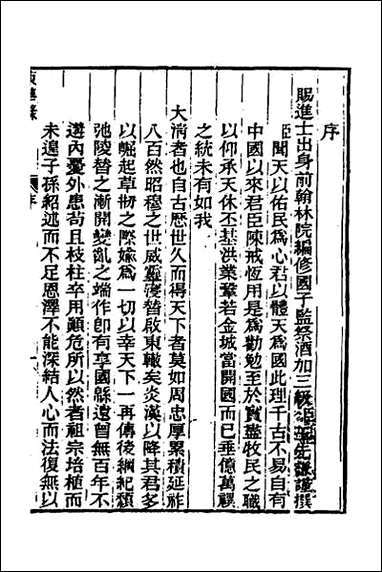 序
賜進士出身前翰林院編修國子監祭酒加三級臣王先謙謹撰
臣聞天以佑民爲心君以體天爲國此理千古不易自有
中國以來君臣陳戒恆用是爲勸勉至於寶盡牧民之職
以仰承天休丕基洪業鞏若金城當開國而已垂億萬禩
之統未有如我
大清者也自古歷世久而得天下者莫如周忠厚累積延祚
八百然昭穆之世威靈寖替啟東轍矣炎漢以降其君多
以崛起草昧之際媮爲一切以幸天下一再傳後綱紀頹
弛陵替之漸開變亂之端作卽有享國緜遠曾無百年不
遘內憂外患苟且枝柱卒用顚危所以然者祖宗培植而
未遑子孫紹述而不足恩澤不能深結人心而法復無以
東華錄
序